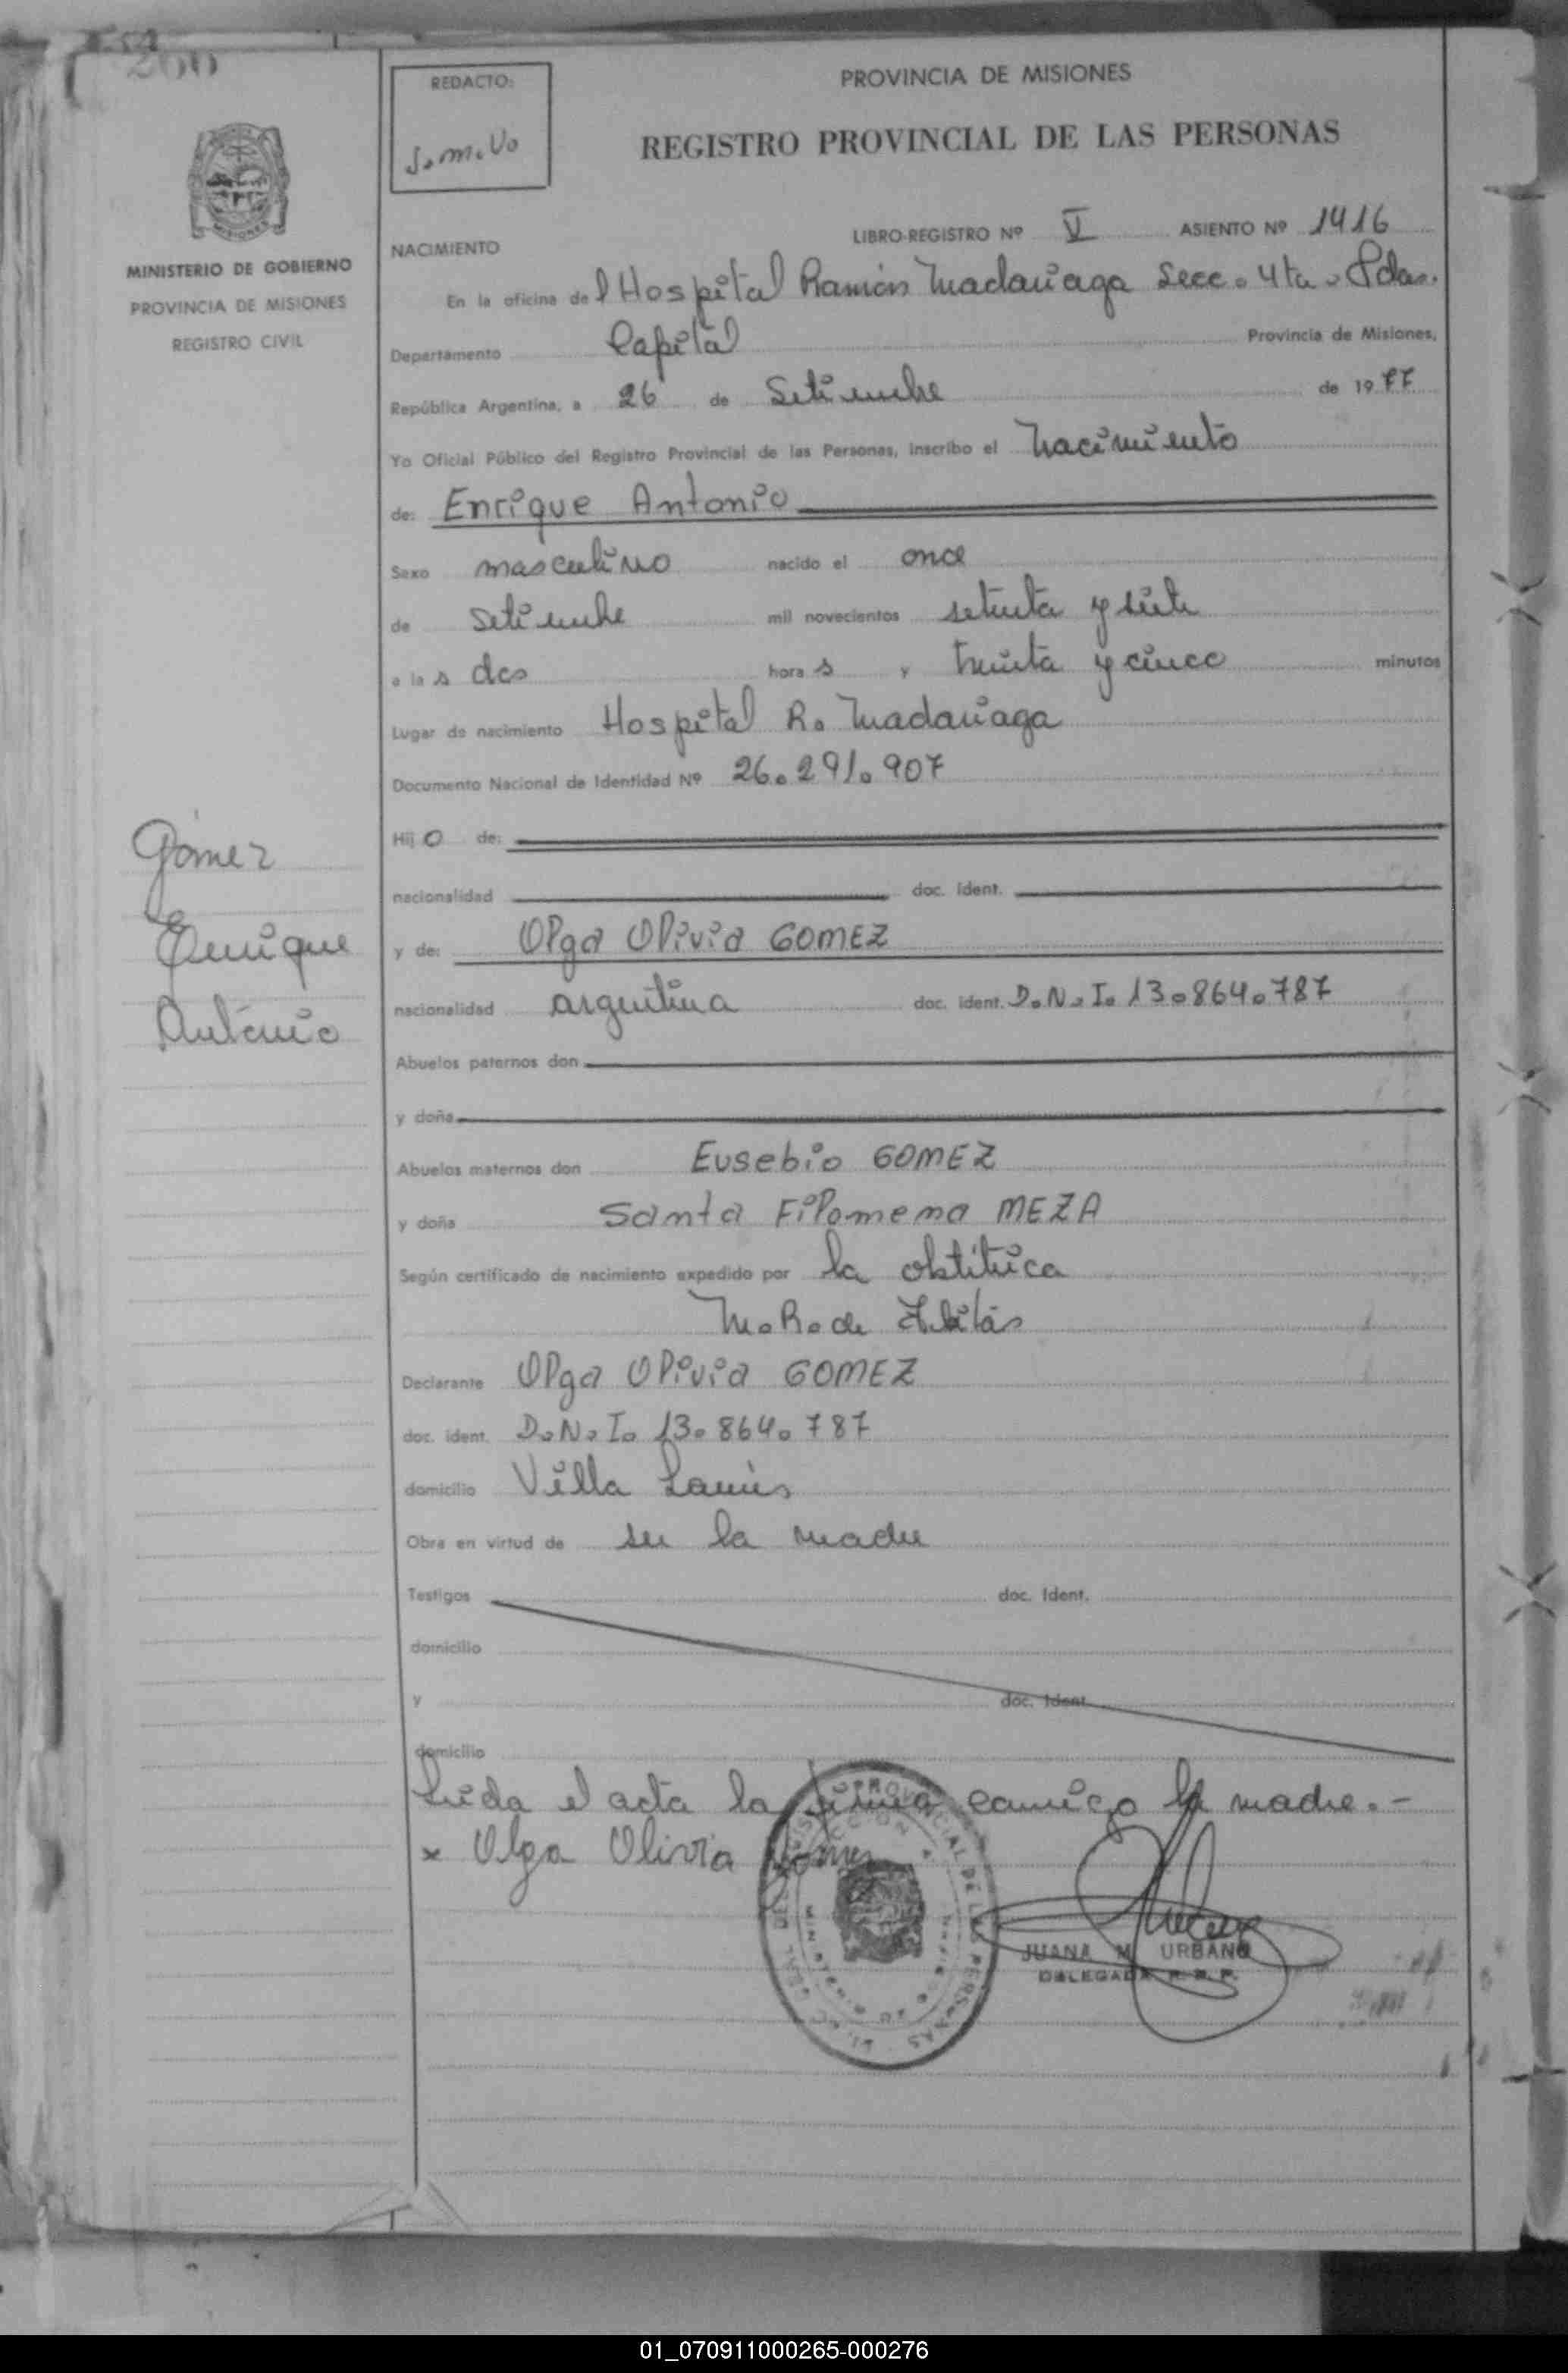 266
REDACTO:
J.M.Uo
PROVINCIA DE MISIONES
REGISTRO PROVINCIAL DE LAS PERSONAS
MINISTERIO DE GOBIERNO
PROVINCIA DE MISIONES
REGISTRO CIVIL
NACIMIENTO
LIBRO-REGISTRO Nº V ASIENTO Nº 1416
En la oficina del Hospital Ramón Madariaga Secc. 4ta. Pdas.
Departamento Capital Provincia de Misiones,
República Argentina, a 26 de Setiembre de 1977
Yo Oficial Público del Registro Provincial de las Personas, inscribo el nacimiento
de: Enrique Antonio
Sexo masculino nacido el once
de Setiembre mil novecientos setenta y siete
a las dos horas y treinta y cinco minutos
Lugar de nacimiento Hospital R. Madariaga
Documento Nacional de Identidad Nº 26.291.907
Hijo de:
nacionalidad doc. ident.
y de: Olga Olivia GOMEZ
nacionalidad argentina doc. ident. D.N.I. 13.864.787
Gómez
Enrique
Antonio
Abuelos paternos don
y doña
Abuelos maternos don Eusebio GOMEZ
y doña Santa Filomena MEZA
Según certificado de nacimiento expedido por la obstétrica
M.R. de
Declarante Olga Olivia GOMEZ
doc. ident. D.N.I. 13.864.787
domicilio Villa Lanús
Obra en virtud de ser la madre
Testigos doc. Ident.
domicilio
y doc. Ident.
domicilio
Leida el acta la firma conmigo la madre.-
x Olga Olivia Gomez
JUANA M. URBANO
DELEGADA R. P. P.
01_070911000265-000276